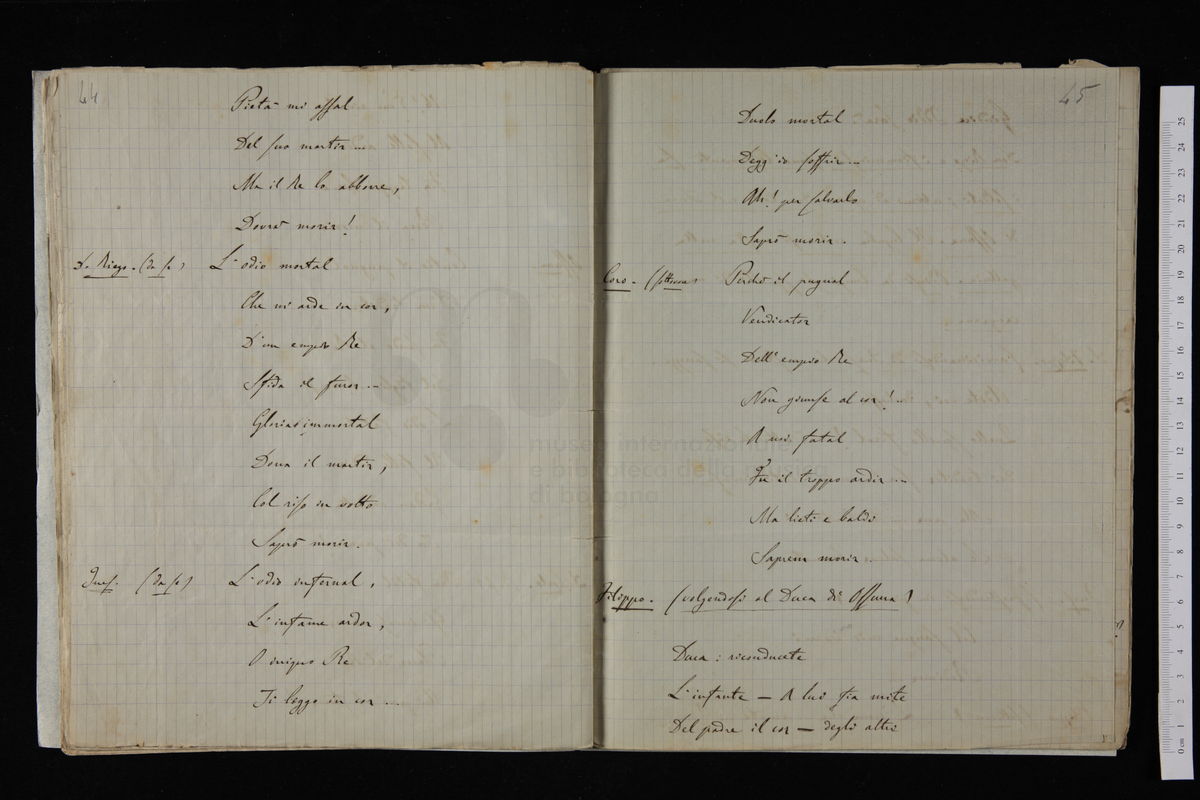 44
Pietà mi assal
Del suo martir ...
Ma il Re lo abborre,
Dovrà morir!
D. Diego. (da se) L'odio mortal
Che mi arde in cor,
D'un empio Re
Sfida il furor ...
Gloria immortal
Dona il martir,
Col riso in volto
Saprò morir.
Ines. (da se) L'odio infernal,
L'infame ardor,
O iniquo Re
Ti leggo in cor ...
45
Duolo mortal
Degg'io soffrir ...
Ah! per salvarlo
Saprò morir.
Coro. (sottovoce) Perchè il pugnal
Vendicator
Dell'empio Re
Non giunse al cor! ..
A noi fatal
Fu il troppo ardir ...
Ma lieti e baldi
Saprem morir ..
Filippo. (volgendosi al Duca di Ossuna)
Duca: riconducete
L'infante — A lui fia mite
Del padre il cor — degli altri
museo internazionale
e biblioteca della musica
di bologna
0 cm 1 2 3 4 5 6 7 8 9 10 11 12 13 14 15 16 17 18 19 20 21 22 23 24 25